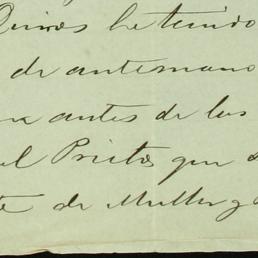 Quiros he tenido
de antemano
antes de las
el Prieto que
de Muller y